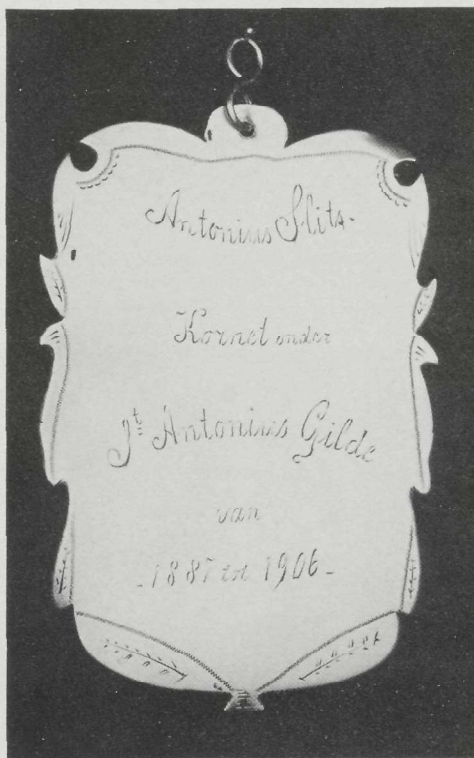 Antonius Slits.
Kornet onder
St Antonius Gilde
van
- 1887 tot 1906 -